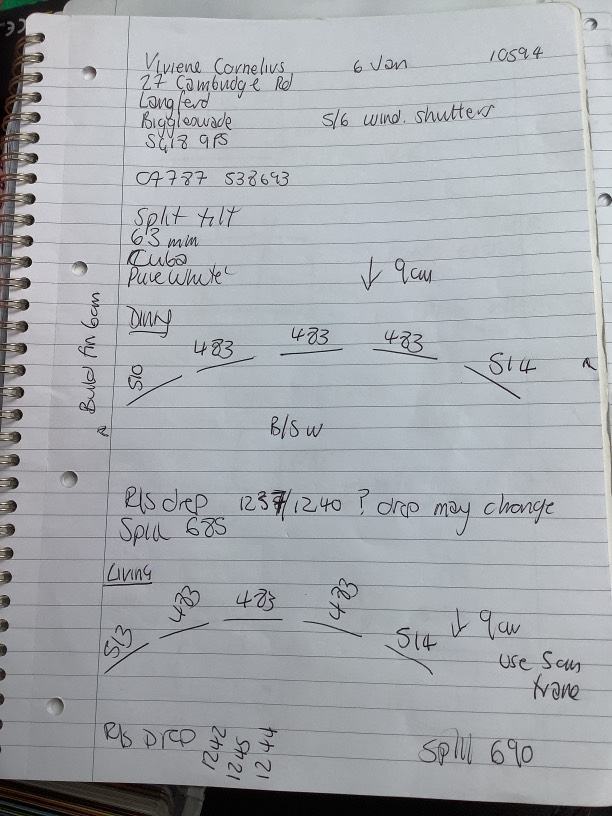 Viviene Cornelius 6 Jan 10594
27 Cambudge Rd
Langford
Biggleswade S/6 wind. shutters
SG18 9PS
07787 538693
Split tilt
63 mm
Cuba
Pure White ↓ 9cm
Build fin 6am
Dining
510 483 483 483 514
B/S W
R/s drop 1237/1240 ? drop may change
Split 685
Living
513 483 483 483 514 ↓ 9cm
use 5cm
frame
R/s Drop 1242 1245 1244 Split 690